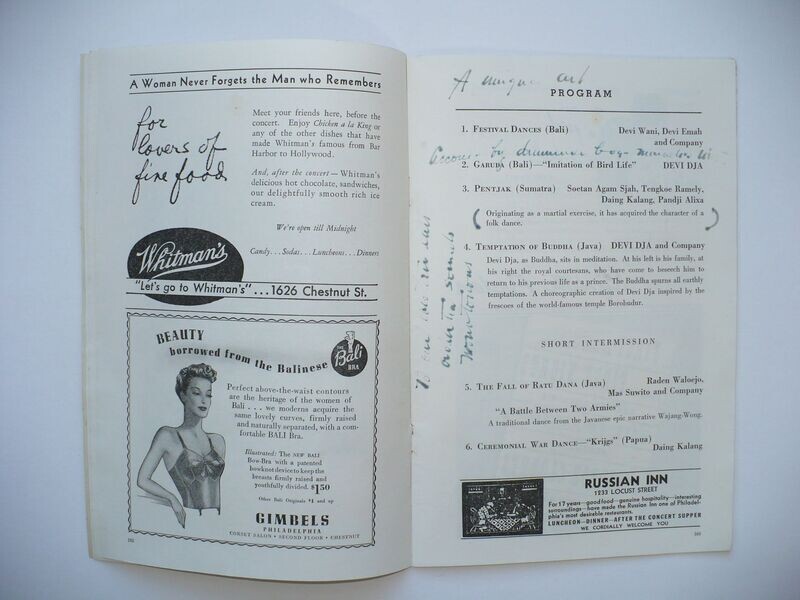 A Woman Never Forgets the Man who Remembers
for
lovers of
fine foods
Meet your friends here, before the
concert. Enjoy Chicken a la King or
any of the other dishes that have
made Whitman's famous from Bar
Harbor to Hollywood.
And, after the concert—Whitman's
delicious hot chocolate, sandwiches,
our delightfully smooth rich ice
cream.
We're open till Midnight
Candy...Sodas...Luncheons...Dinners
Whitman's
"Let's go to Whitman's"...1626 Chestnut St.
BEAUTY
borrowed from the Balinese
THE
Bali
BRA
Perfect above-the-waist contours
are the heritage of the women of
Bali . . . we moderns acquire the
same lovely curves, firmly raised
and naturally separated, with a com-
fortable BALI Bra.
Illustrated: The NEW BALI
Bow-Bra with a patented
bowknot device to keep the
breasts firmly raised and
youthfully divided. $1.50
Other Bali Originals $1 and up
GIMBELS
PHILADELPHIA
CORSET SALON • SECOND FLOOR • CHESTNUT
A unique art
PROGRAM
1. Festival Dances (Bali) Devi Wani, Devi Emah
and Company
by
2. Garuda (Bali)—"Imitation of Bird Life" DEVI DJA
3. Pentjak (Sumatra) Soetan Agam Sjah, Tengkoe Ramely,
Daing Kalang, Pandji Alixa
Originating as a martial exercise, it has acquired the character of a
folk dance.
4. Temptation of Buddha (Java) DEVI DJA and Company
Devi Dja, as Buddha, sits in meditation. At his left is his family, at
his right the royal courtesans, who have come to beseech him to
return to his previous life as a prince. The Buddha spurns all earthly
temptations. A choreographic creation of Devi Dja inspired by the
frescoes of the world-famous temple Borobudur.
SHORT INTERMISSION
5. The Fall of Ratu Dana (Java) Raden Waloejo,
Mas Suwito and Company
"A Battle Between Two Armies"
A traditional dance from the Javanese epic narrative Wajang-Wong.
6. Ceremonial War Dance—"Krijgs" (Papua)
Daing Kalang
RUSSIAN INN
1233 LOCUST STREET
For 17 years—good food—genuine hospitality—interesting
surroundings—have made the Russian Inn one of Philadel-
phia's most desirable restaurants.
LUNCHEON–DINNER–AFTER THE CONCERT SUPPER
WE CORDIALLY WELCOME YOU